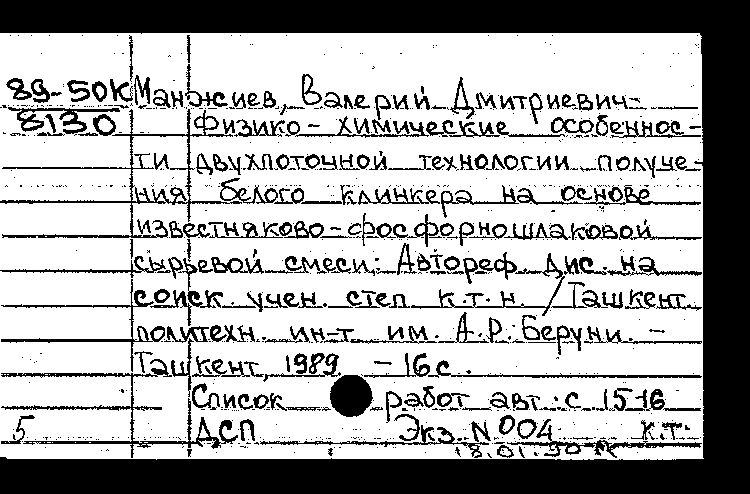 89-50К Манжиев, Валерий Дмитриевич-
8130 Физико-химические особеннос-
ти двухпоточной технологии получе-
ния белого клинкера на основе
известняково-фосфорношлаковой
сырьевой смеси: Автореф. Дис. на
соиск. учен. степ. к.т.н. / Ташкент.
политехн. ин-т. им. А.Р. Беруни. -
Ташкент, 1989. - 16с.
Список работ авт.: с 15-16
5 ДСП Экз. N 004 к.т.
18.01.90